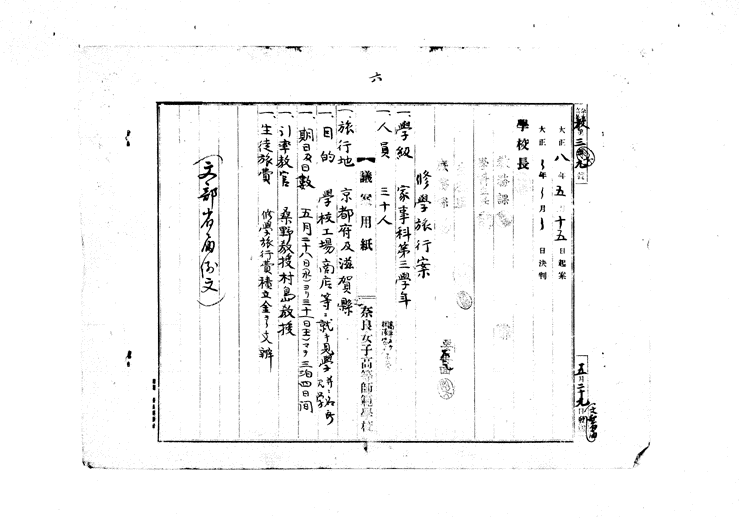 六
大正八年五月十五日起案
大正 年 月 日決判
學校長
修學旅行案
一、學級 家事科第三學年
一、人員 三十人
【議案用紙】
奈良女子高等師範學校
一、旅行地 京都府及滋賀縣
一、目的 學校工場商店等ニ就キ見學
一、期日及日數 五月二十八日(水)ヨリ三十一日(土)マデ三泊四日間
一、引率教官 桑野教授村島教授
一、生徒旅費 修學旅行費積立金ヨリ支辨
(文部省
五月二十九日